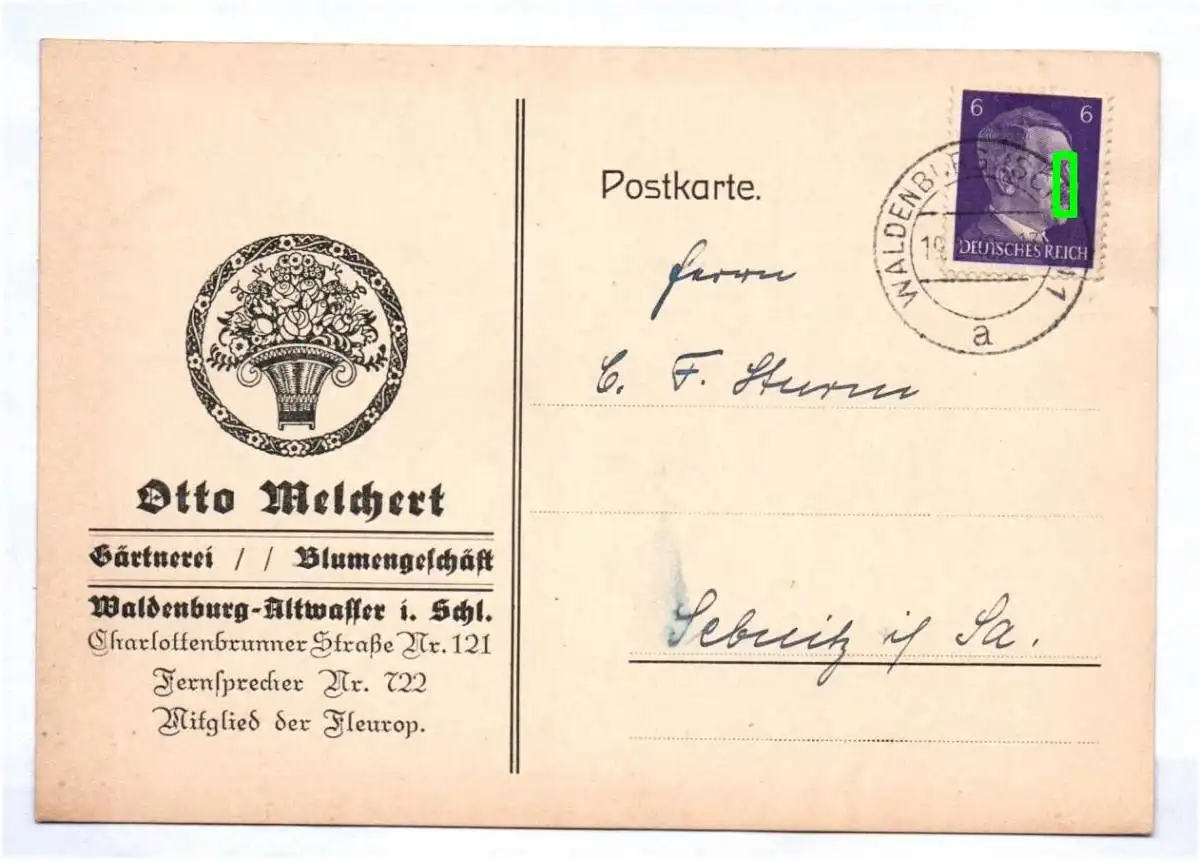 Otto Melchert
Gärtnerei // Blumengeschäft
Waldenburg-Altwasser i. Schl.
Charlottenbrunner Straße Nr. 121
Fernsprecher Nr. 722
Mitglied der Fleurop.
Postkarte.
6 6
DEUTSCHES REICH
WALDENBURG
a
Herrn
C. F. Sturm
Sebnitz i/ Sa.